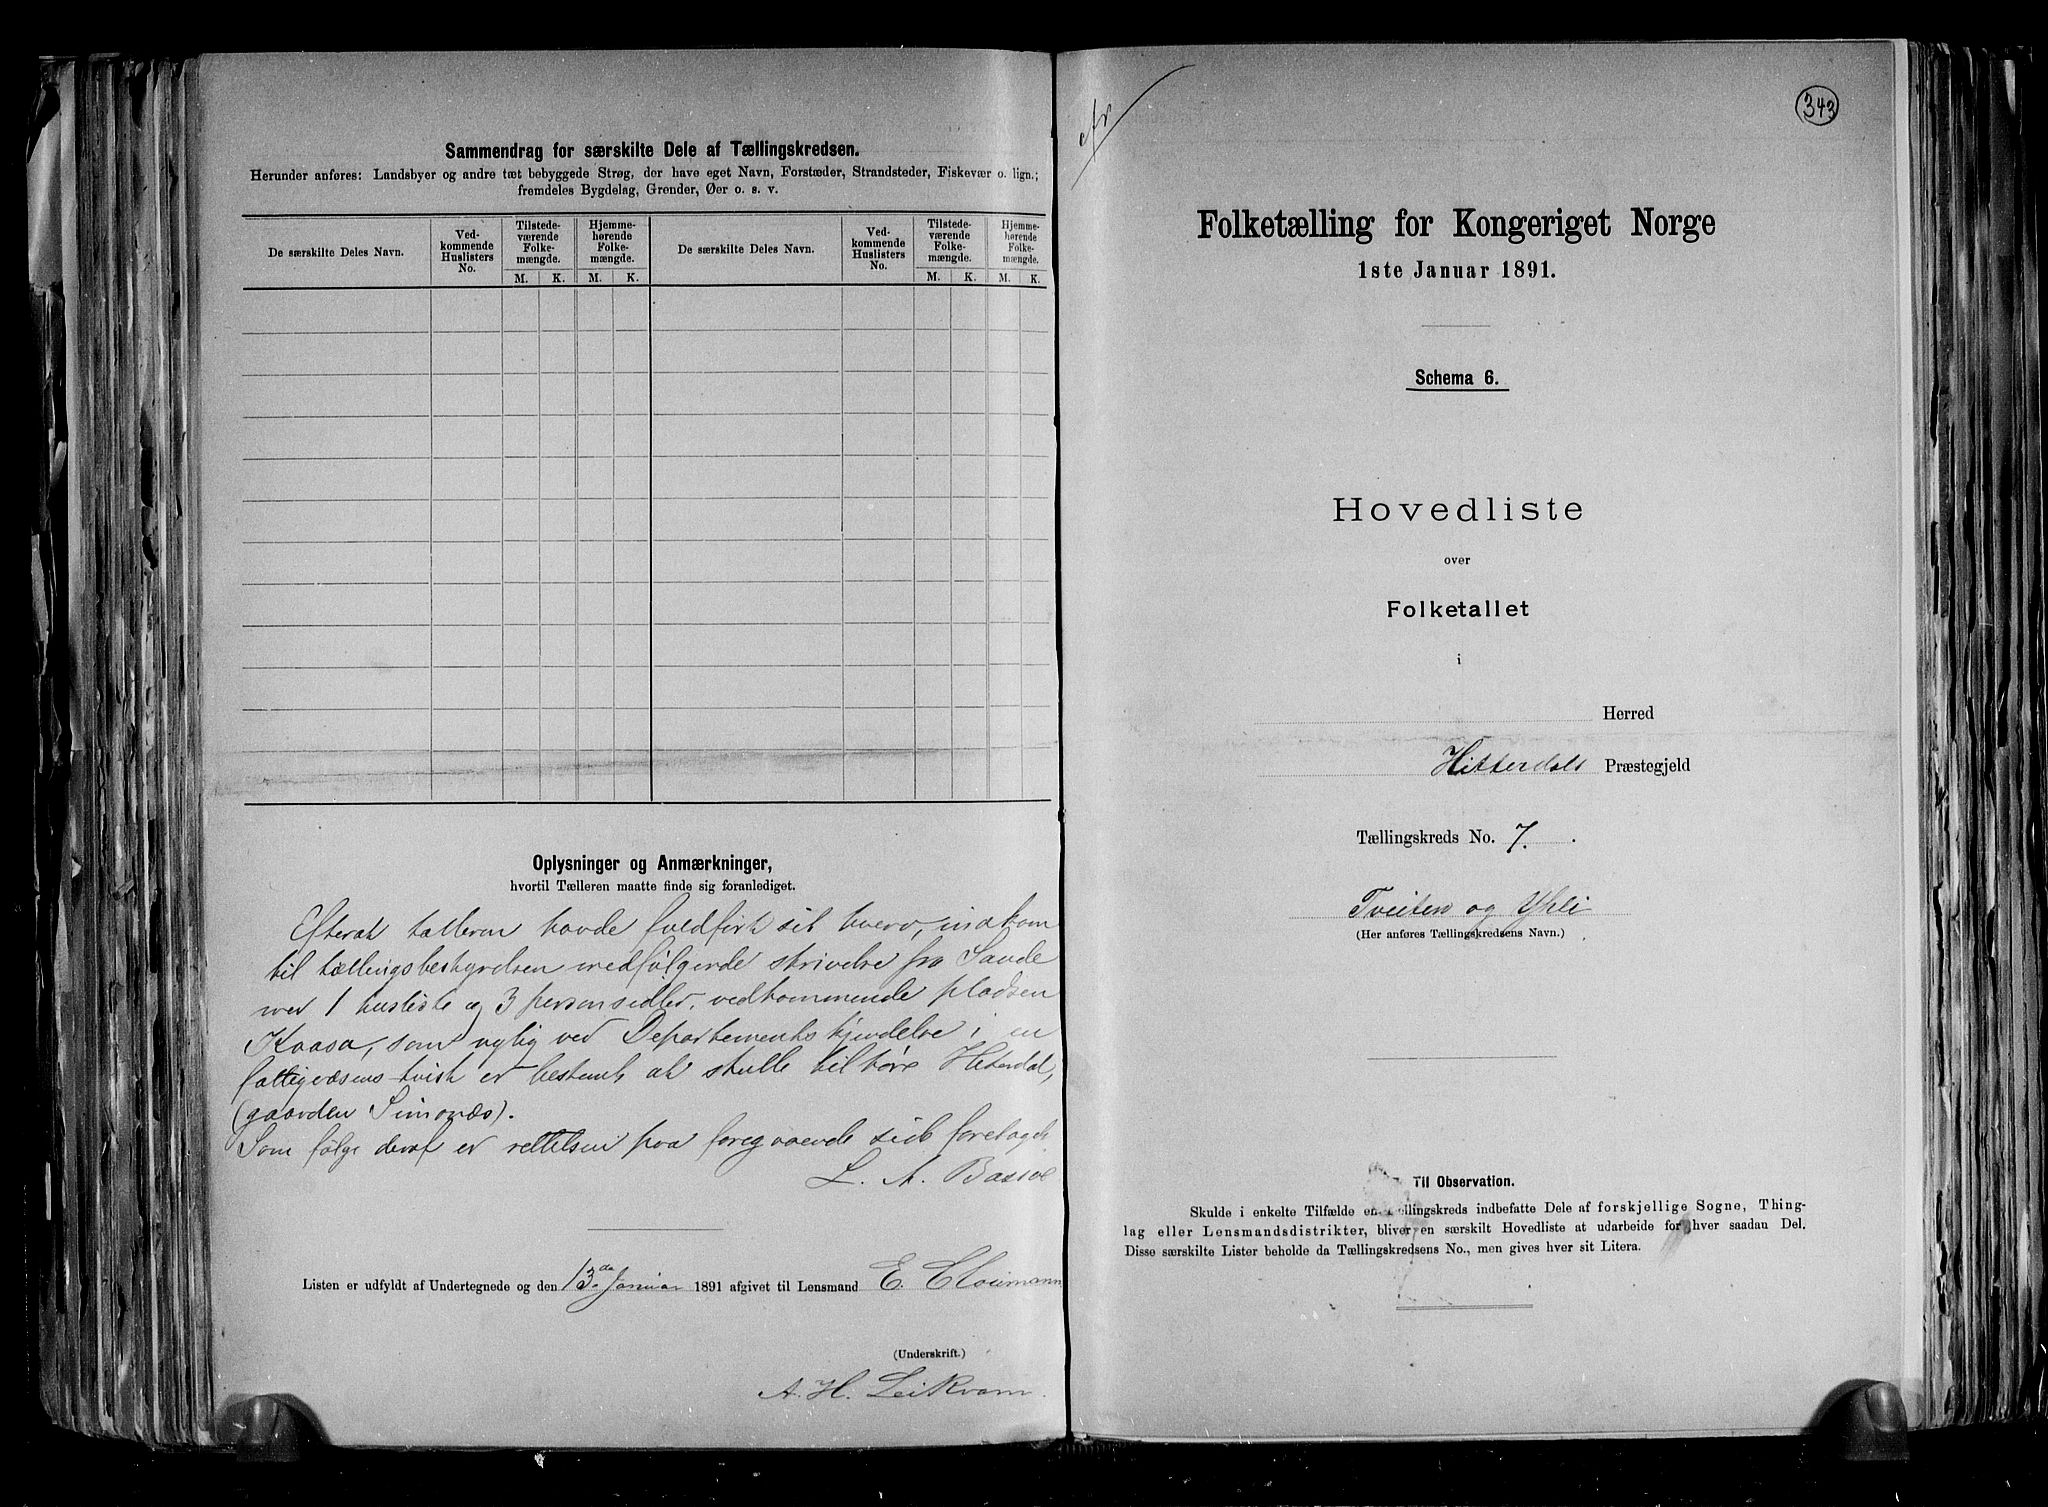 Sammendrag for særskilte Dele af Tællingskredsen.
Herunder anføres: Landsbyer og andre tæt bebyggede Strøg, der have eget Navn, Forstæder, Strandsteder, Fiskevær o. lign.;
fremdeles Bygdelag, Grender, Øer o. s. v.
De særskilte Deles Navn.
Ved-
kommende
Huslisters
No.
Tilstede-
værende
Folke-
mængde.
Hjemme-
hørende
Folke-
mængde.
De særskilte Deles Navn.
Ved-
kommende
Huslisters
No.
Tilstede-
værende
Folke-
mængde.
Hjemme-
hørende
Folke-
mængde.
M. K. M. K. M. K. M. K.
Oplysninger og Anmærkninger,
hvortil Tælleren maatte finde sig foranlediget.
Efterat tælleren havde fuldført sit hverv, indkom
til tællingsbestyrelsen medfølgende skrivelse fra Saude
med 1 husliste og 3 personsedler, vedkommende pladsen
Kaasa, som nylig ved Departements kjendelse i en
fattigvæsens tvist er bestemt at skulle tilhøre Hiterdal,
(gaarden Simonæs).
Som følge deraf er rettelsen paa foregaaende side foretaget
L. A.
Listen er udfyldt af Undertegnede og den 13de Januar 1891 afgivet til Lensmand E. Cloumann
(Underskrift.)
A. H. Leikvam.
343
Folketælling for Kongeriget Norge
1ste Januar 1891.
Schema 6.
Hovedliste
over
Folketallet
i
Herred
Hitterdals Præstegjeld
Tællingskreds No. 7.
Tveiten og Yhli
(Her anføres Tællingskredsens Navn.)
Til Observation.
Skulde i enkelte Tilfælde en Tællingskreds indbefatte Dele af forskjellige Sogne, Thing-
lag eller Lensmandsdistrikter, bliver en særskilt Hovedliste at udarbeide for hver saadan Del.
Disse særskilte Lister beholde da Tællingskredsens No., men gives hver sit Litera.